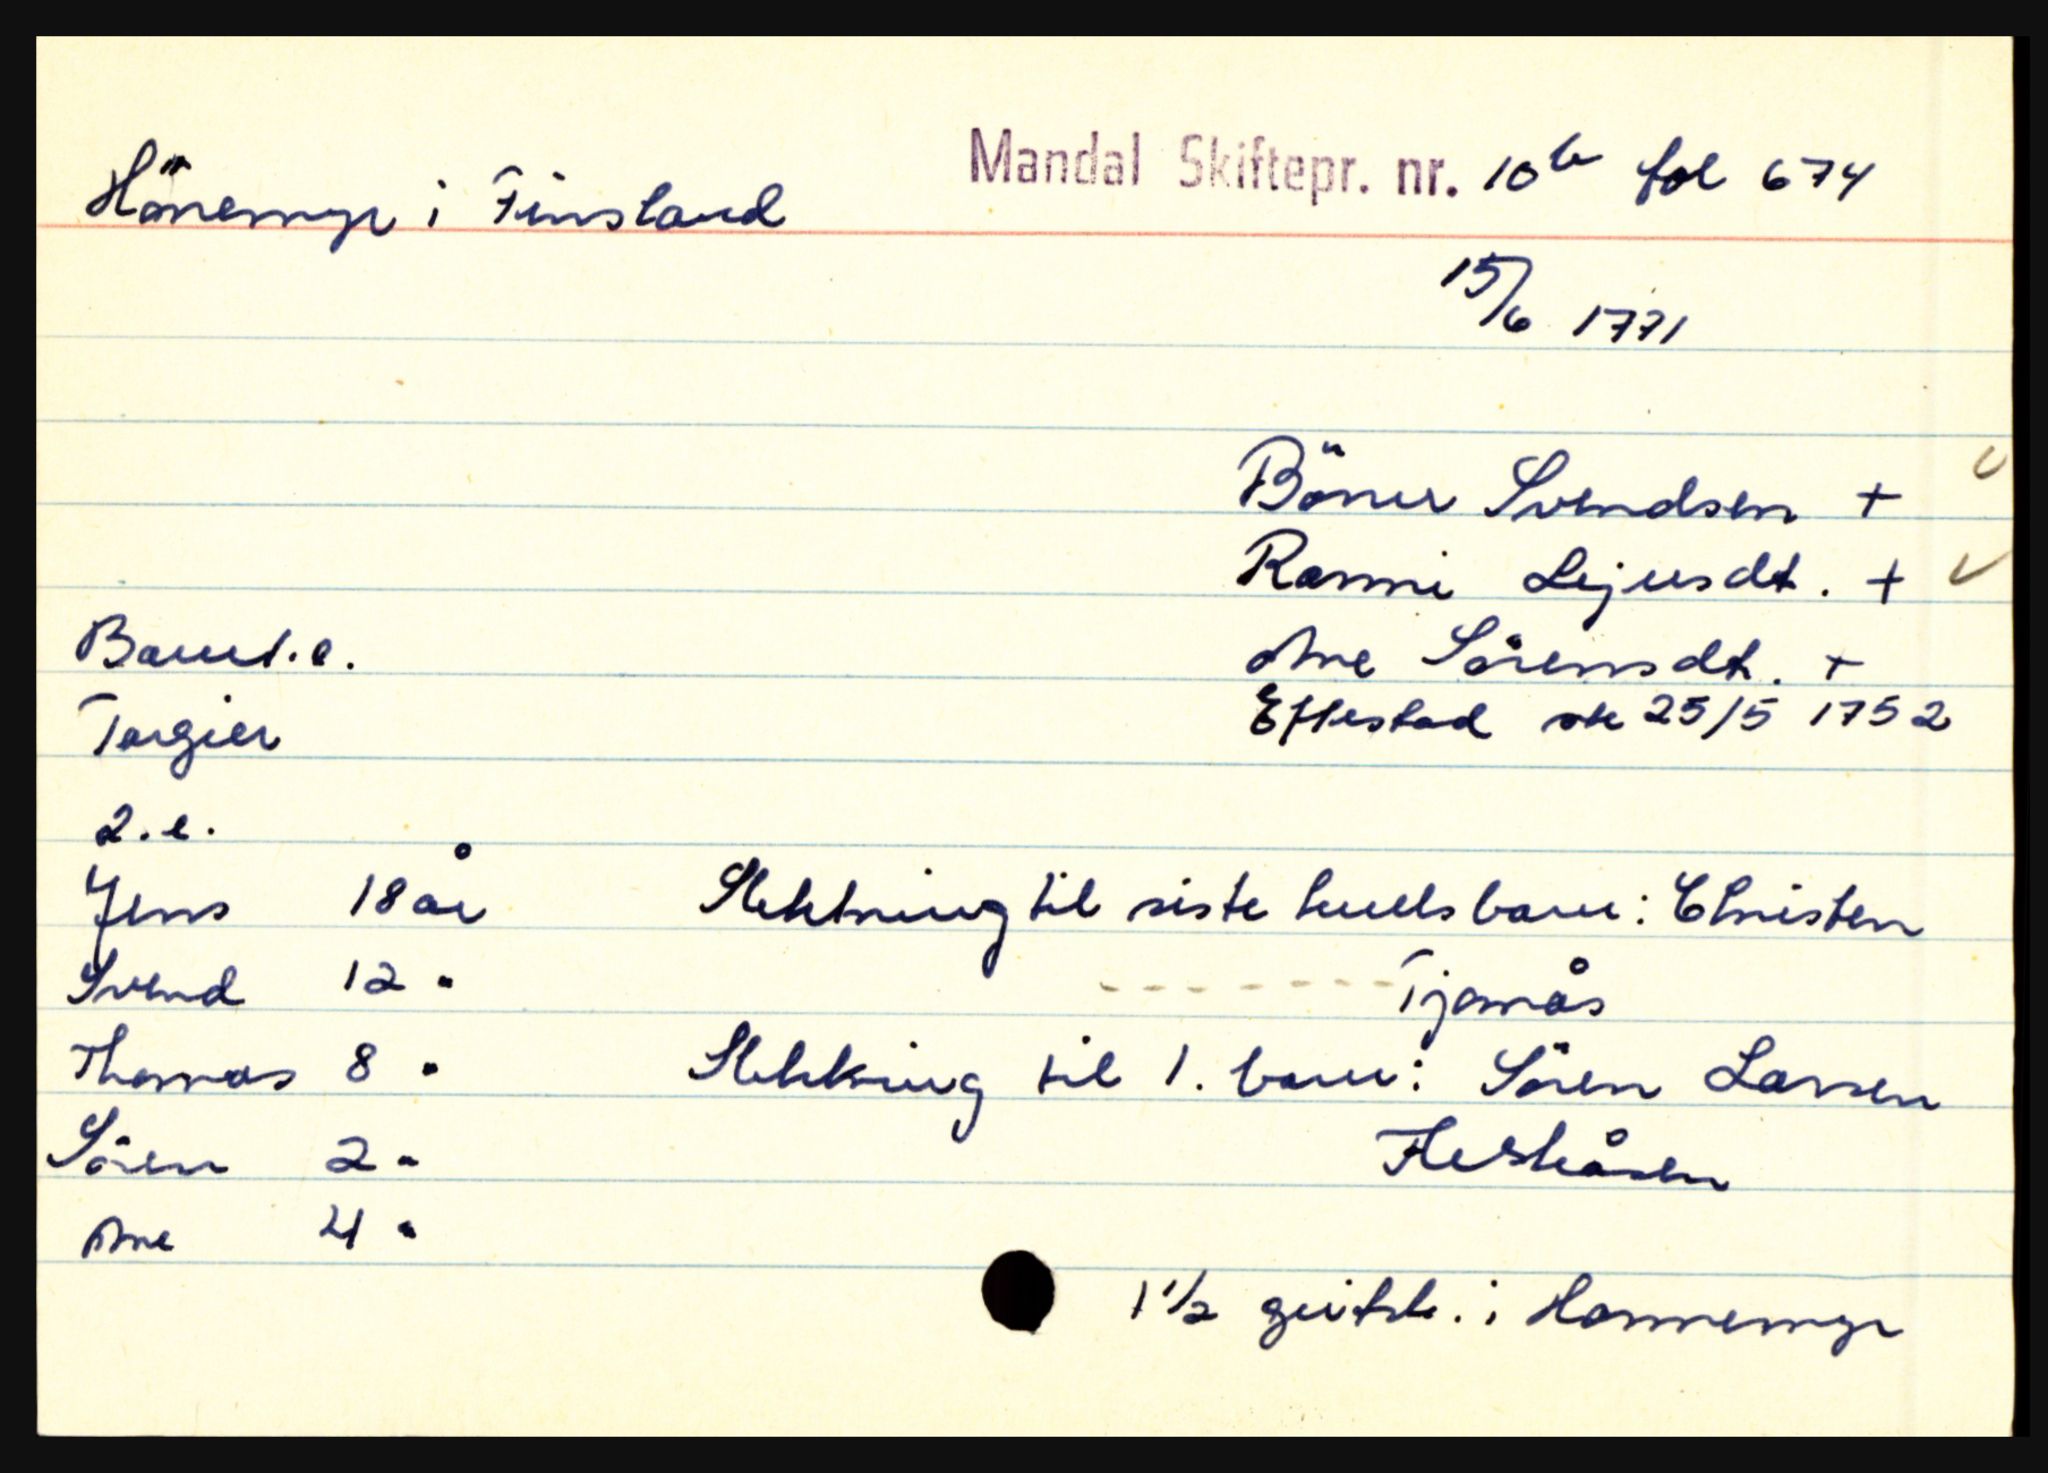 Mandal Skiftepr. nr. 10b fol 674
Hönemyr i Finsland
15/6 1771
Böner Svendsen +
Ranni Lejusdt. +
Barn 1. e.
Ane Sörensdt. +
Torgier
Eftestad sk 25/5 1752
2. e.
Jens 18 år
Slektning til siste kulls barn: Christen
Svend 12 "
Tjomås
Thomas 8 "
Slektning til 1. barn: Sören Larsen
Sören 2 "
Fleskåsen
Ane 4 "
1 1/2 geitsk. i Honnemyr